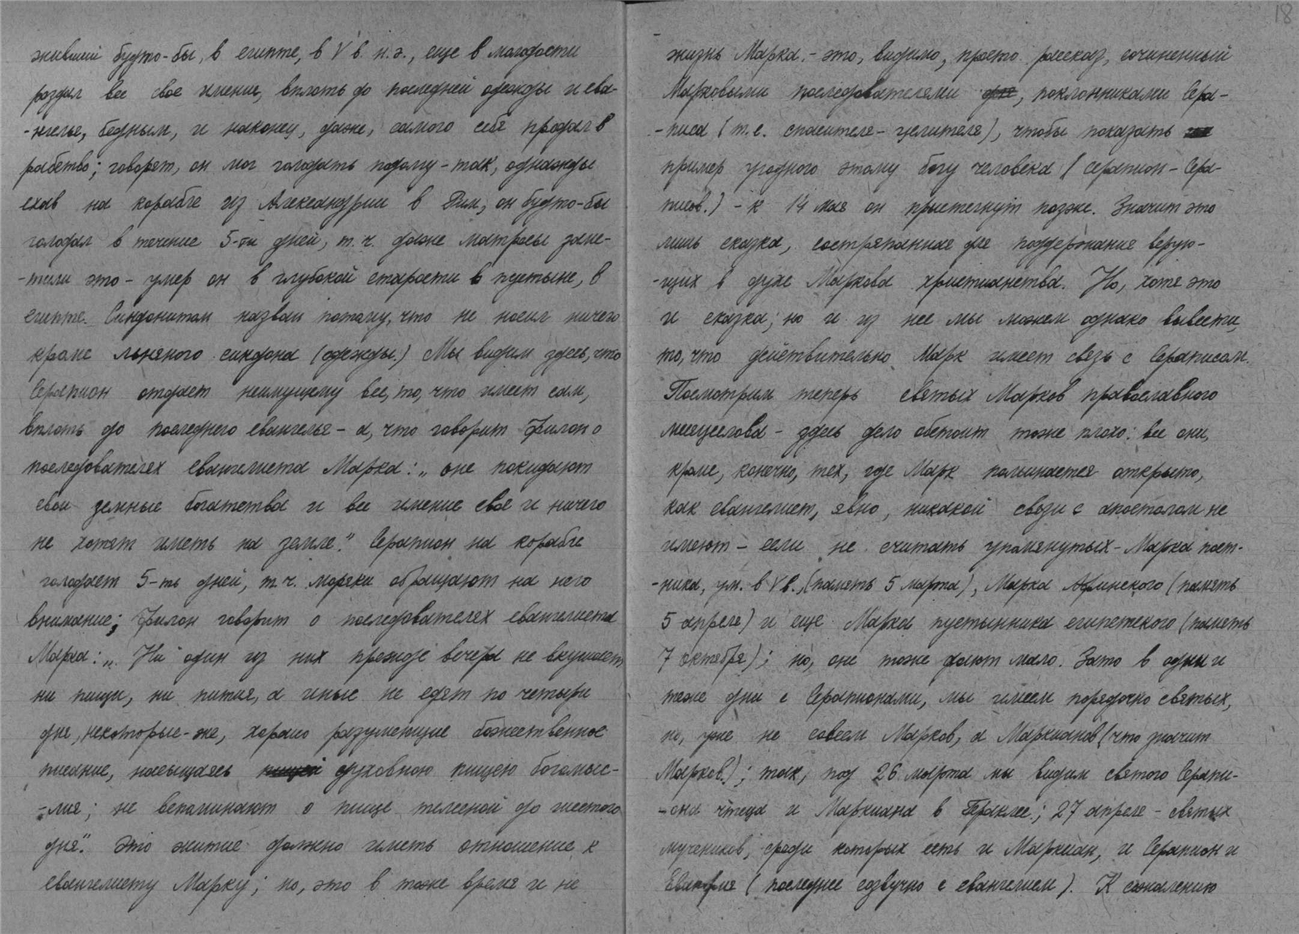 живший будто-бы, в египте, в V в. н.э., еще в молодости
роздал все свое имение, вплоть до последней одежды и ева-
-нгелье, бедным, и наконец, даже, самого себя продал в
рабство; говорят, он мог голодать подолгу - так, однажды
ехав на корабле из Александрии в Рим, он будто-бы
голодал в течение 5-ти дней, т.ч. даже матросы заме-
-тили это - умер он в глубокой старости в пустыне, в
египте. Синдонитом назван потому, что не носил ничего
кроме льняного синдона (одежды.) Мы видим здесь, что
Серапион отдает неимущему все, то, что имеет сам,
вплоть до последнего евангелья - а, что говорит Филон о
последователях евангелиста Марка: „ они покидают
свои земные богатства и все имение свое и ничего
не хотят иметь на земле." Серапион на корабле
голодает 5-ть дней, т.ч. моряки обращают на него
внимание; Филон говорит о последователях евангелиста
Марка: „ Ни один из них прежде вечера не вкушает
ни пищи, ни пития, а иные не едят по четыри
дня, некоторые-же, хорошо разумеющие божественное
писание, насыщаясь духовною пищею богомыс-
-лия; не вспоминают о пище телесной до шестого
дня". Это житие должно иметь отношение к
евангелисту Марку; но, это в тоже время и не
18
жизнь Марка. - это, видимо, просто рассказ, сочиненный
Марковыми последователями, поклонниками Сера-
-писа (т.е. спасителя - целителя), чтобы показать
пример угодного этому богу человека (Серапион - Сера-
писов.) - к 14 мая он пристегнут позже. Значит это
лишь сказка, состряпанная для поддержания верую-
-щих в духе Маркова христианства. Но, хотя это
и сказка; но и из нее мы можем однако вывести,
то, что действительно Марк имеет связь с Сераписом.
Посмотрим теперь святых Марков православного
месяцеслова - здесь дело обстоит тоже плохо: все они,
кроме, конечно, тех, где Марк поминается открыто,
как евангелист, явно, никакой связи с апостолом не
имеют - если не считать упомянутых - Марка пост-
-ника, ум. в V в. (память 5 марта), Марка Афинского (память
5 апреля) и еще Марка пустынника египетского (память
7 октября); но, они тоже дают мало. Зато в одни и
теже дни с Серапионами, мы имеем порядочно святых,
но, уже не совсем Марков, а Маркианов (что значит
Марков.); так, под 26 марта мы видим святого Серапи-
-она чтеца и Маркиана в Ираклее; 27 апреля - святых
мучеников, среди которых есть и Маркиан, и Серапион и
(последнее созвучно с евангелием). К сожалению